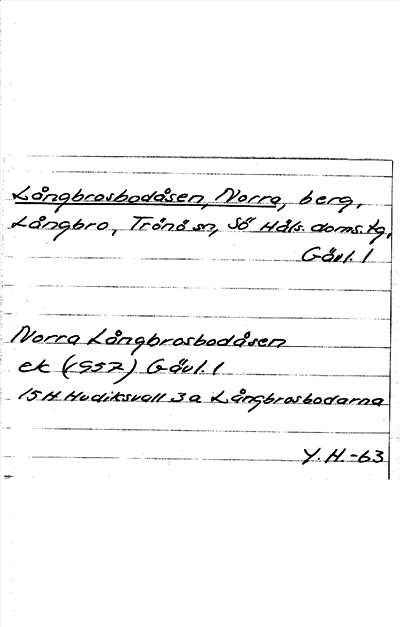 Långbrosbodåsen, Norra, berg,
Långbro, Trönö sn, Sö Häls. doms.tg,
Gävl. l
Norra Långbrosbodåsen
ek (1957) Gävl. l
15H Hudiksvall 3a Långbrosbodarna
Y. H. -63